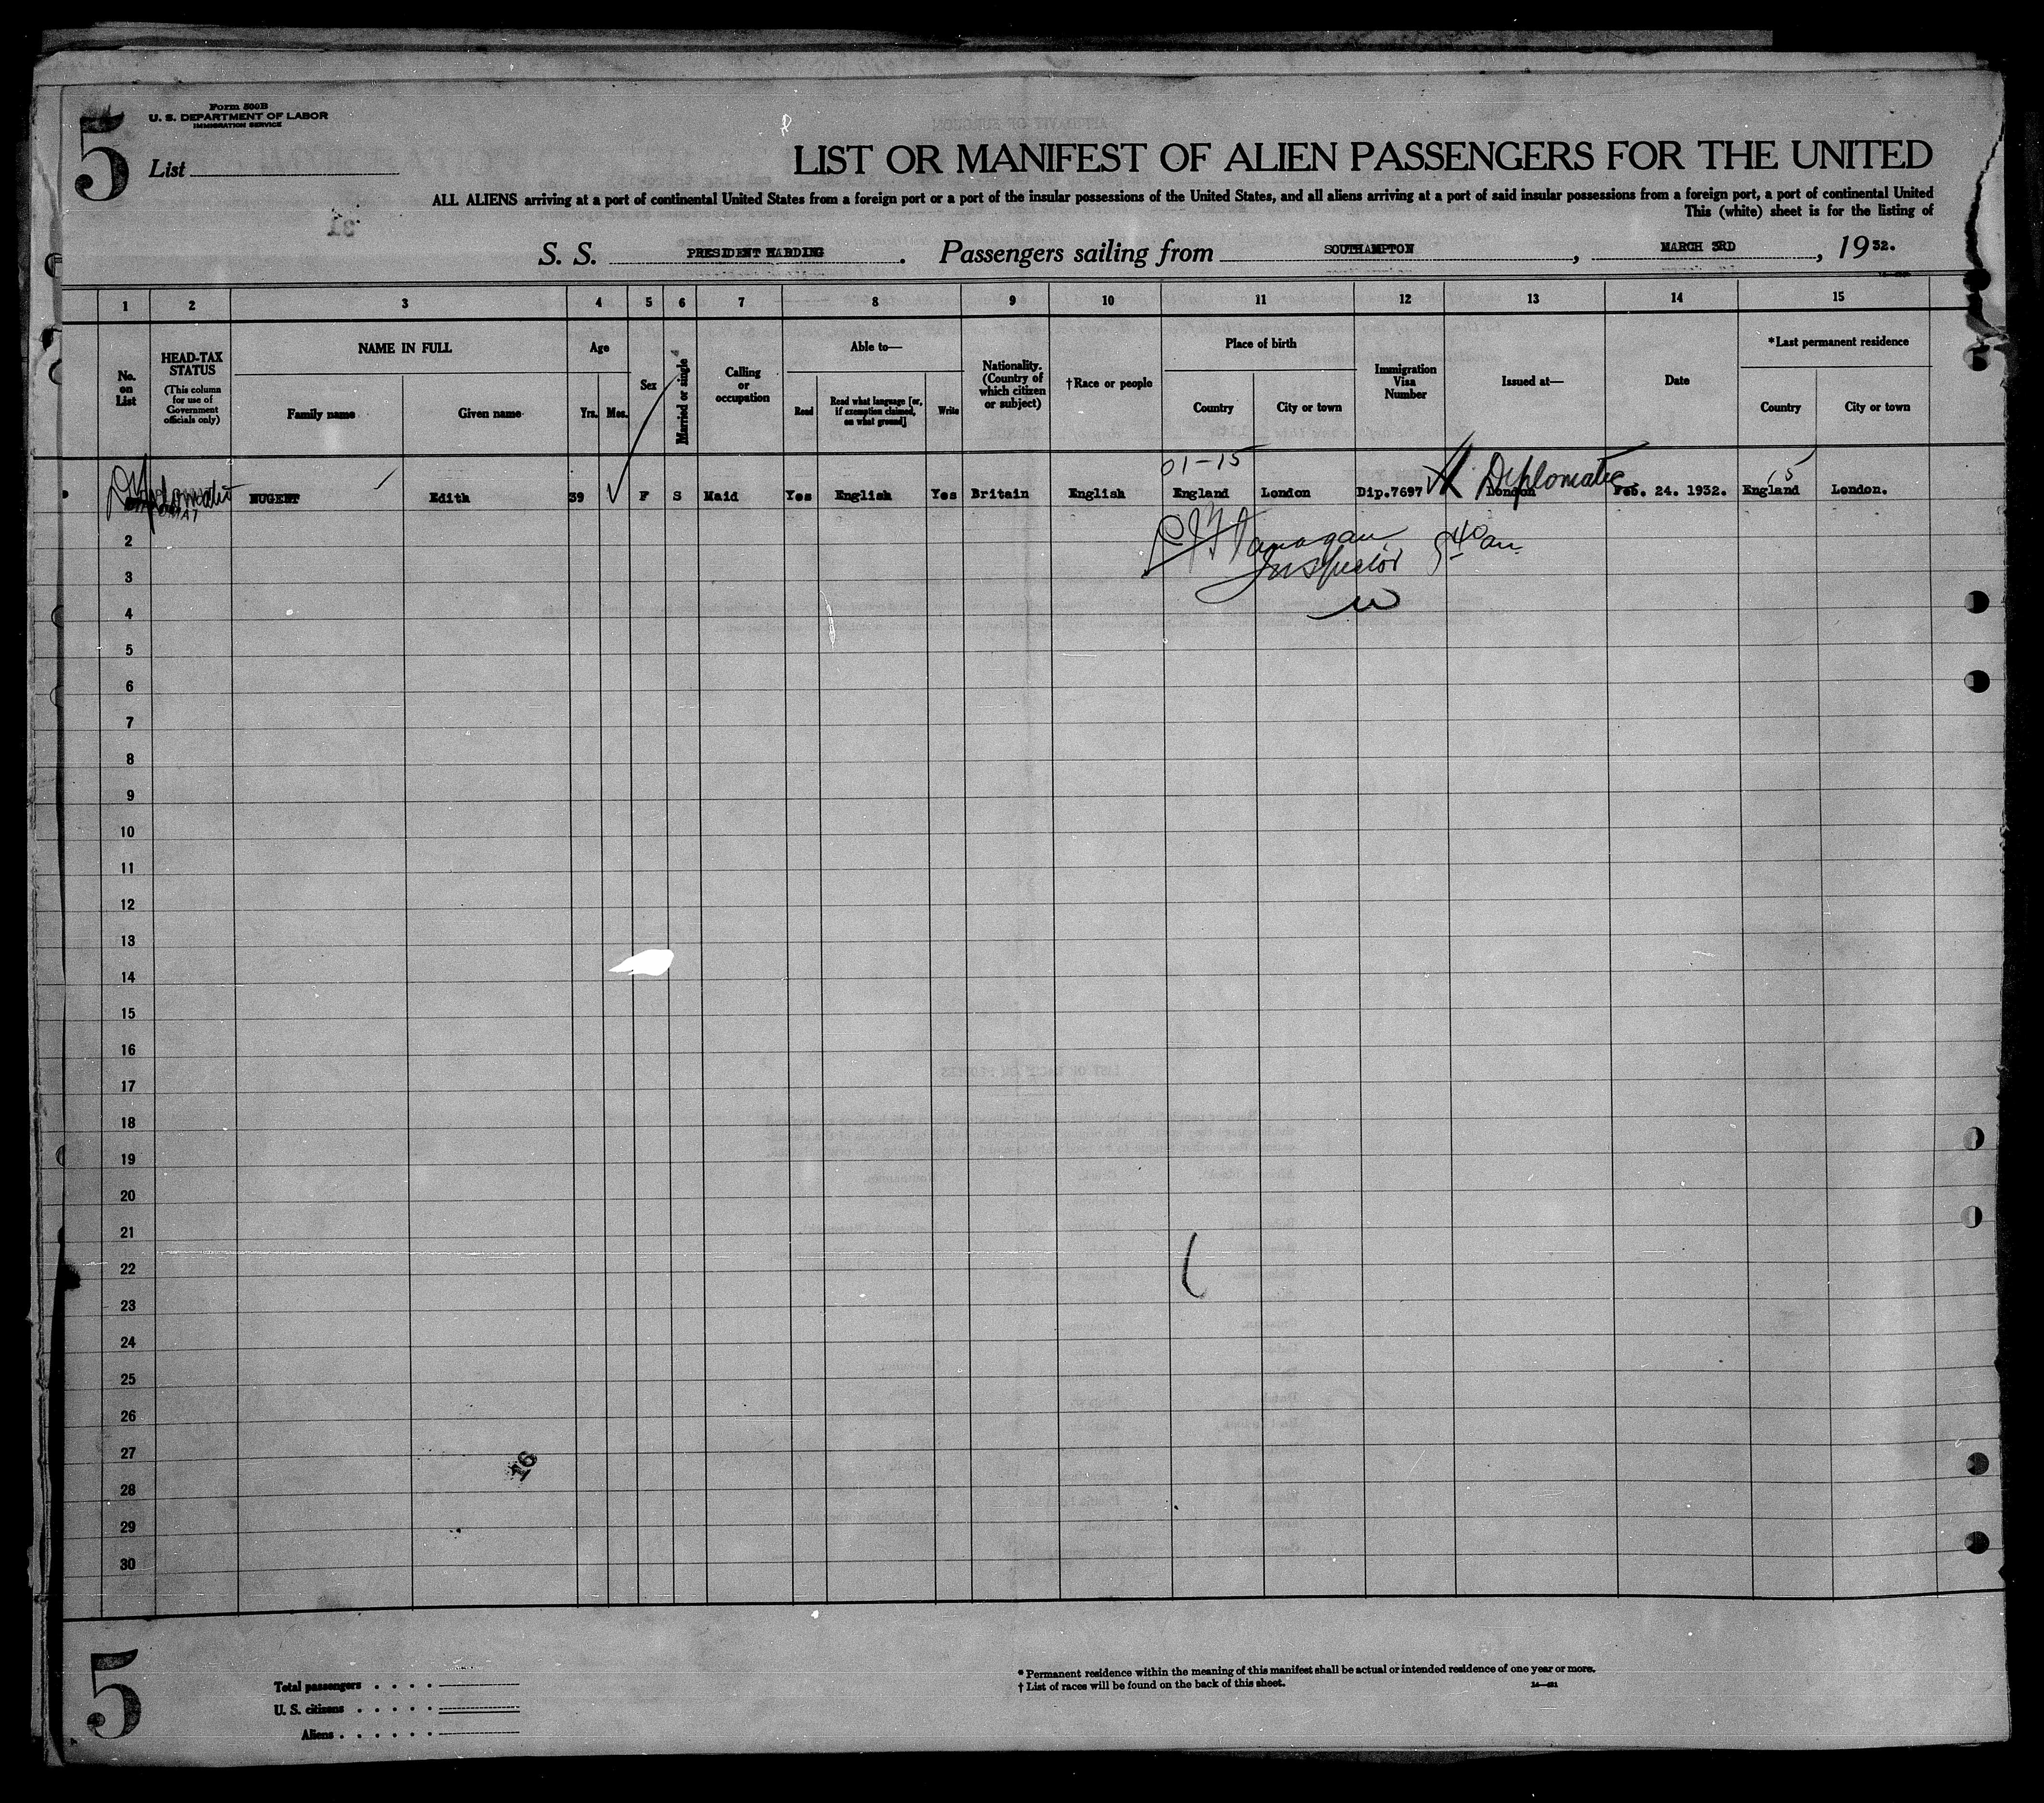 5
Form 500B
U. S. DEPARTMENT OF LABOR
IMMIGRATION SERVICE
List
LIST OR MANIFEST OF ALIEN PASSENGERS FOR THE UNITED
ALL ALIENS arriving at a port of continental United States from a foreign port or a port of the insular possessions of the United States, and all aliens arriving at a port of said insular possessions from a foreign port, a port of continental United
This (white) sheet is for the listing of
S. S. PRESIDENT HARDING. Passengers sailing from SOUTHAMPTON, MARCH 3RD, 1932.
1 2 3 4 5 6 7 8 9 10 11 12 13 14 15
No. on List
HEAD-TAX STATUS
(This column for use of Government officials only)
NAME IN FULL
Family name
Given name
Age
Yrs. Mos.
Sex
Married or single
Calling or occupation
Able to—
Read
Read what language [or, if exemption claimed, on what ground]
Write
Nationality. (Country of which citizen or subject)
†Race or people
Place of birth
Country
City or town
Immigration Visa Number
Issued at—
Date
*Last permanent residence
Country
City or town
01-15
Diplomatic NUGENT Edith 39 F S Maid Yes English Yes Britain English England London Dip.7697 London Diplomatic Feb. 24. 1932. England London.
15
Inspector 9 40 am
2
3
4
5
6
7
8
9
10
11
12
13
14
15
16
17
18
19
20
21
22
23
24
25
26
27
28
29
30
16
5
Total passengers
U. S. citizens
Aliens
* Permanent residence within the meaning of this manifest shall be actual or intended residence of one year or more.
† List of races will be found on the back of this sheet.